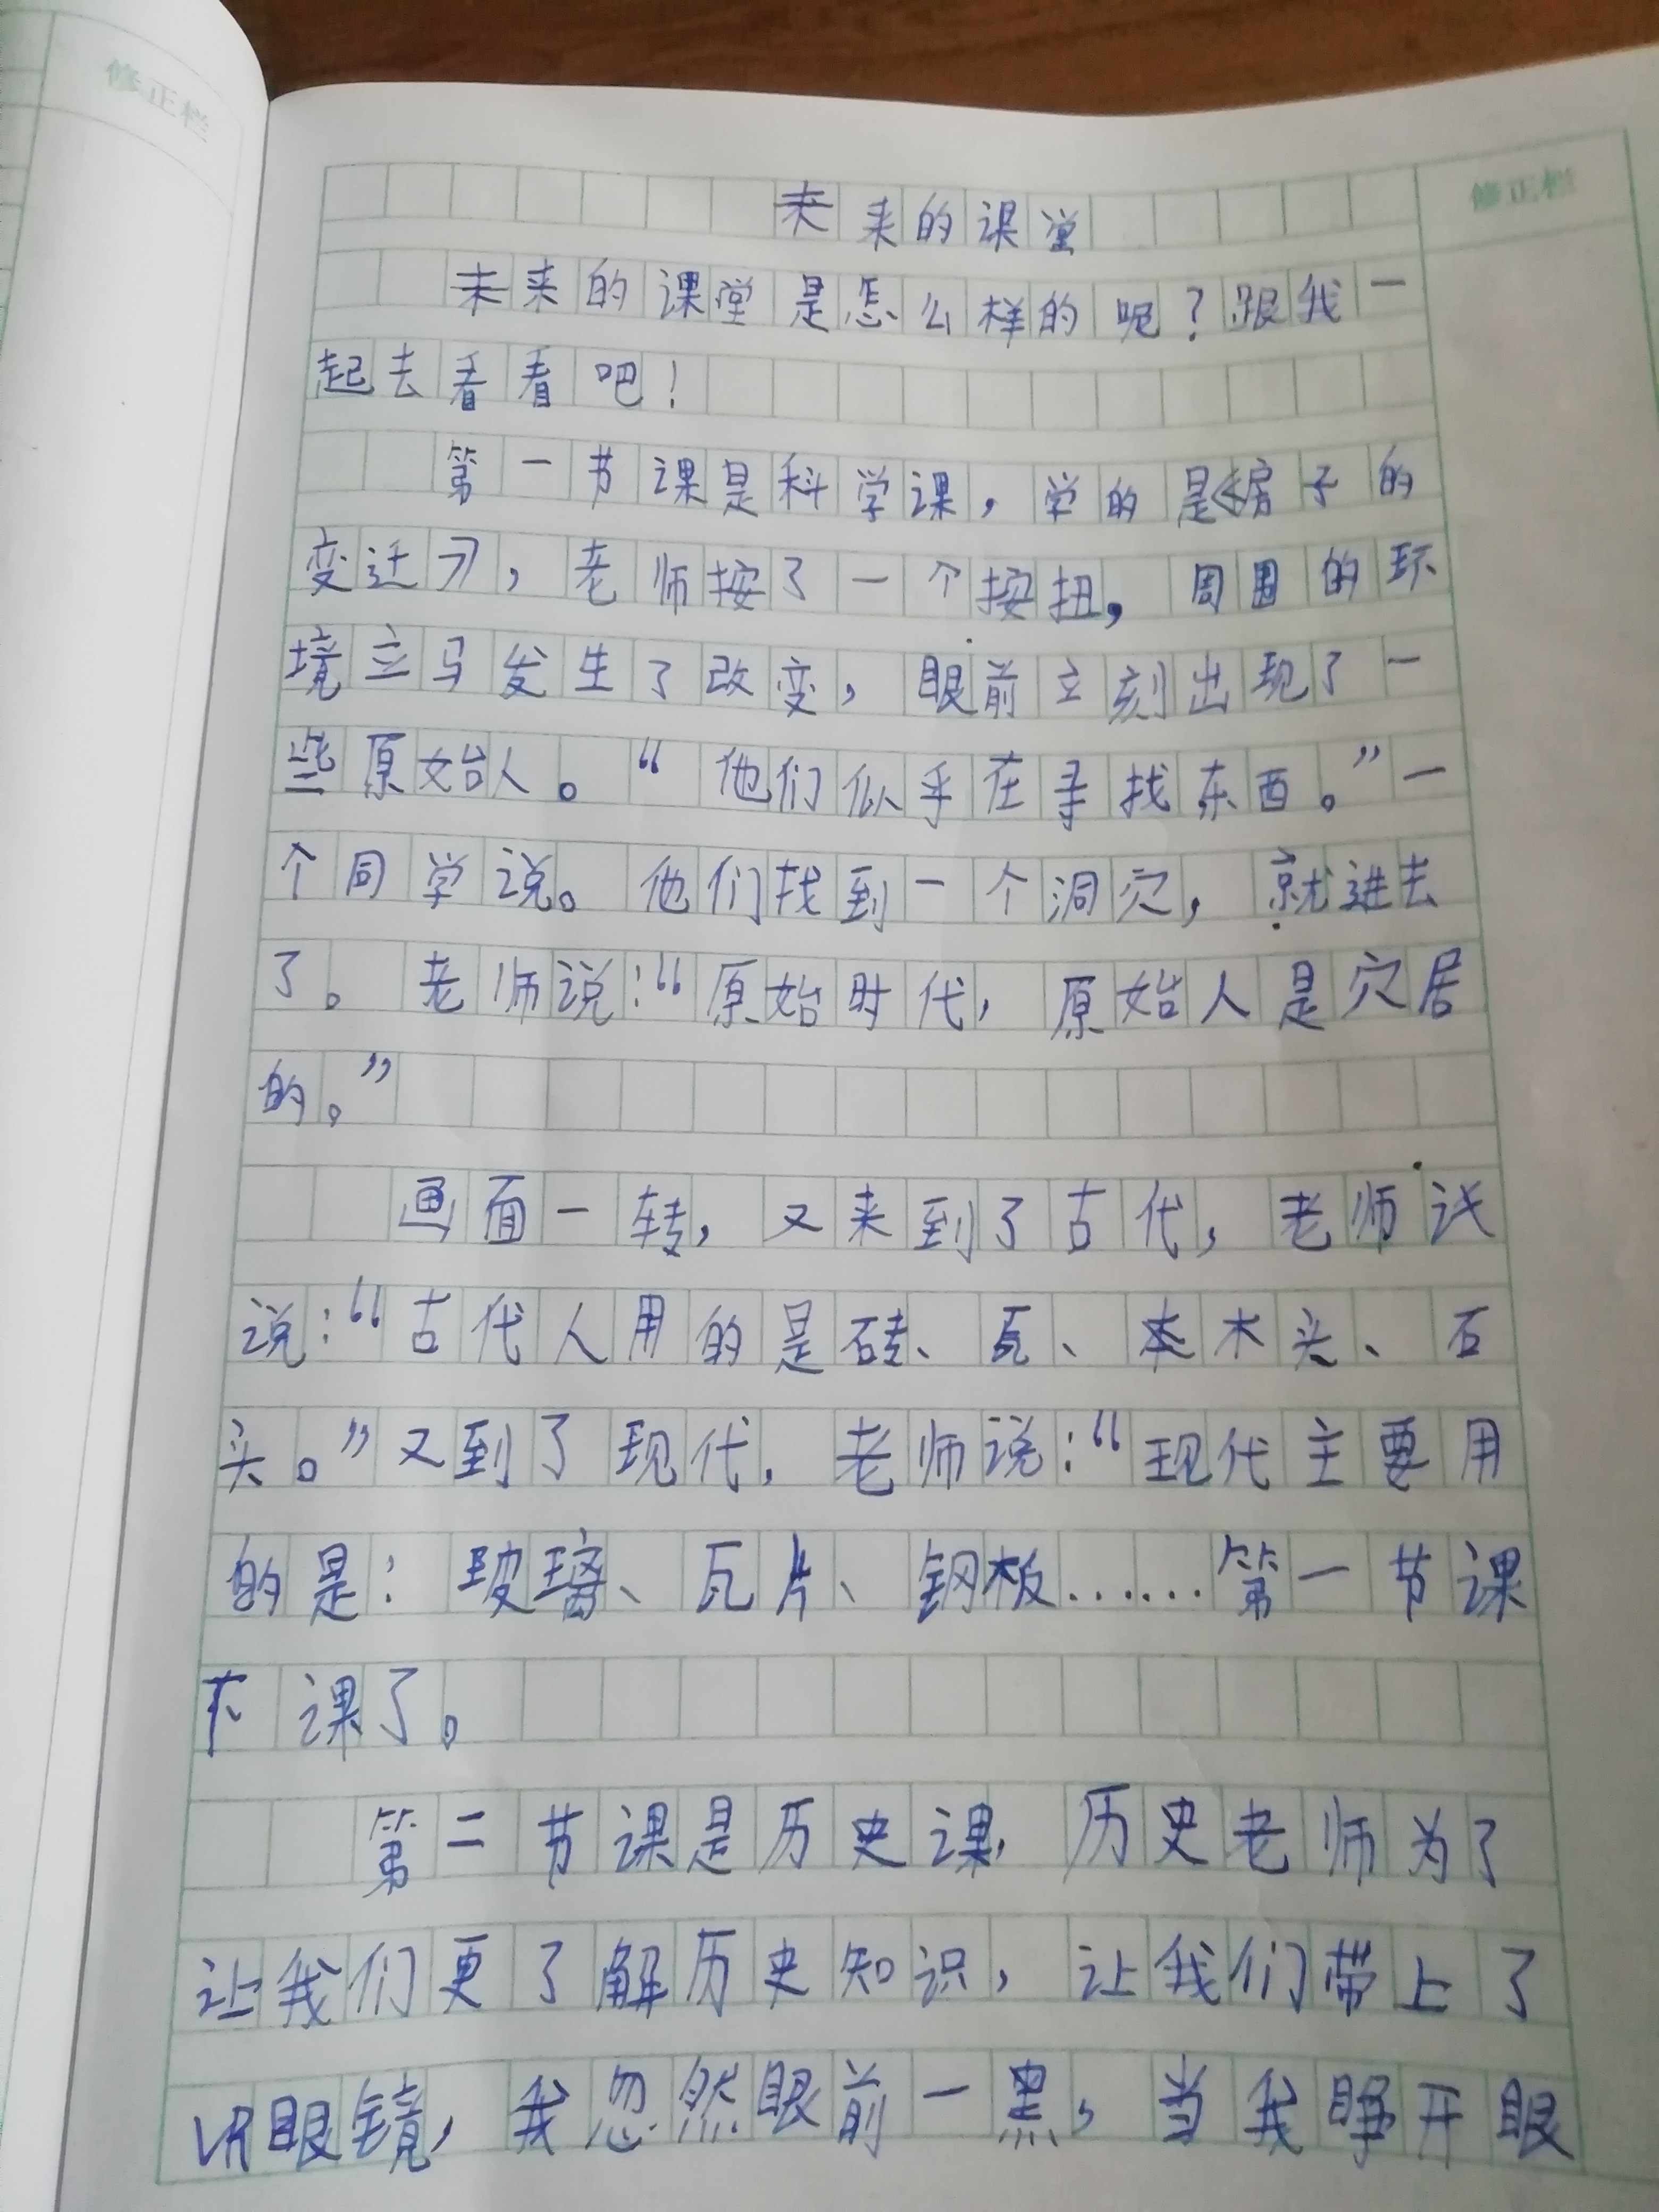 修正栏
修正栏
未来的课堂
未来的课堂是怎么样的呢？跟我一
起去看看吧！
第一节课是科学课，学的是房子的
变迁，老师按了一个按扭，周围的环
境立马发生了改变，眼前立刻出现了一
些原始人。“他们似乎在寻找东西。”一
个同学说。他们找到一个洞穴，就进去
了。老师说：“原始时代，原始人是穴居
的。”
画面一转，又来到了古代，老师
说：“古代人用的是砖、瓦、木头、石
头。”又到了现代，老师说：“现代主要用
的是：玻璃、瓦片、钢板……第一节课
下课了。
第二节课是历史课，历史老师为了
让我们更了解历史知识，让我们带上了
VR眼镜，我忽然眼前一黑，当我睁开眼